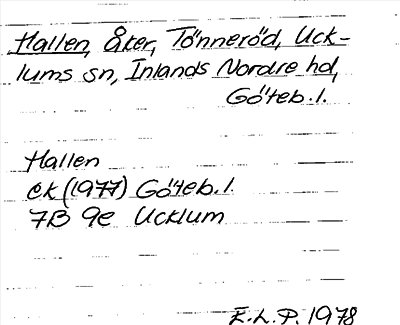 Hallen, Åker, Tönneröd, Uck-
lums sn, Inlands Nordre hd,
Göteb. l.
Hallen
ek (1977) Göteb. l.
7B 9e Ucklum
E. L. P. 1978